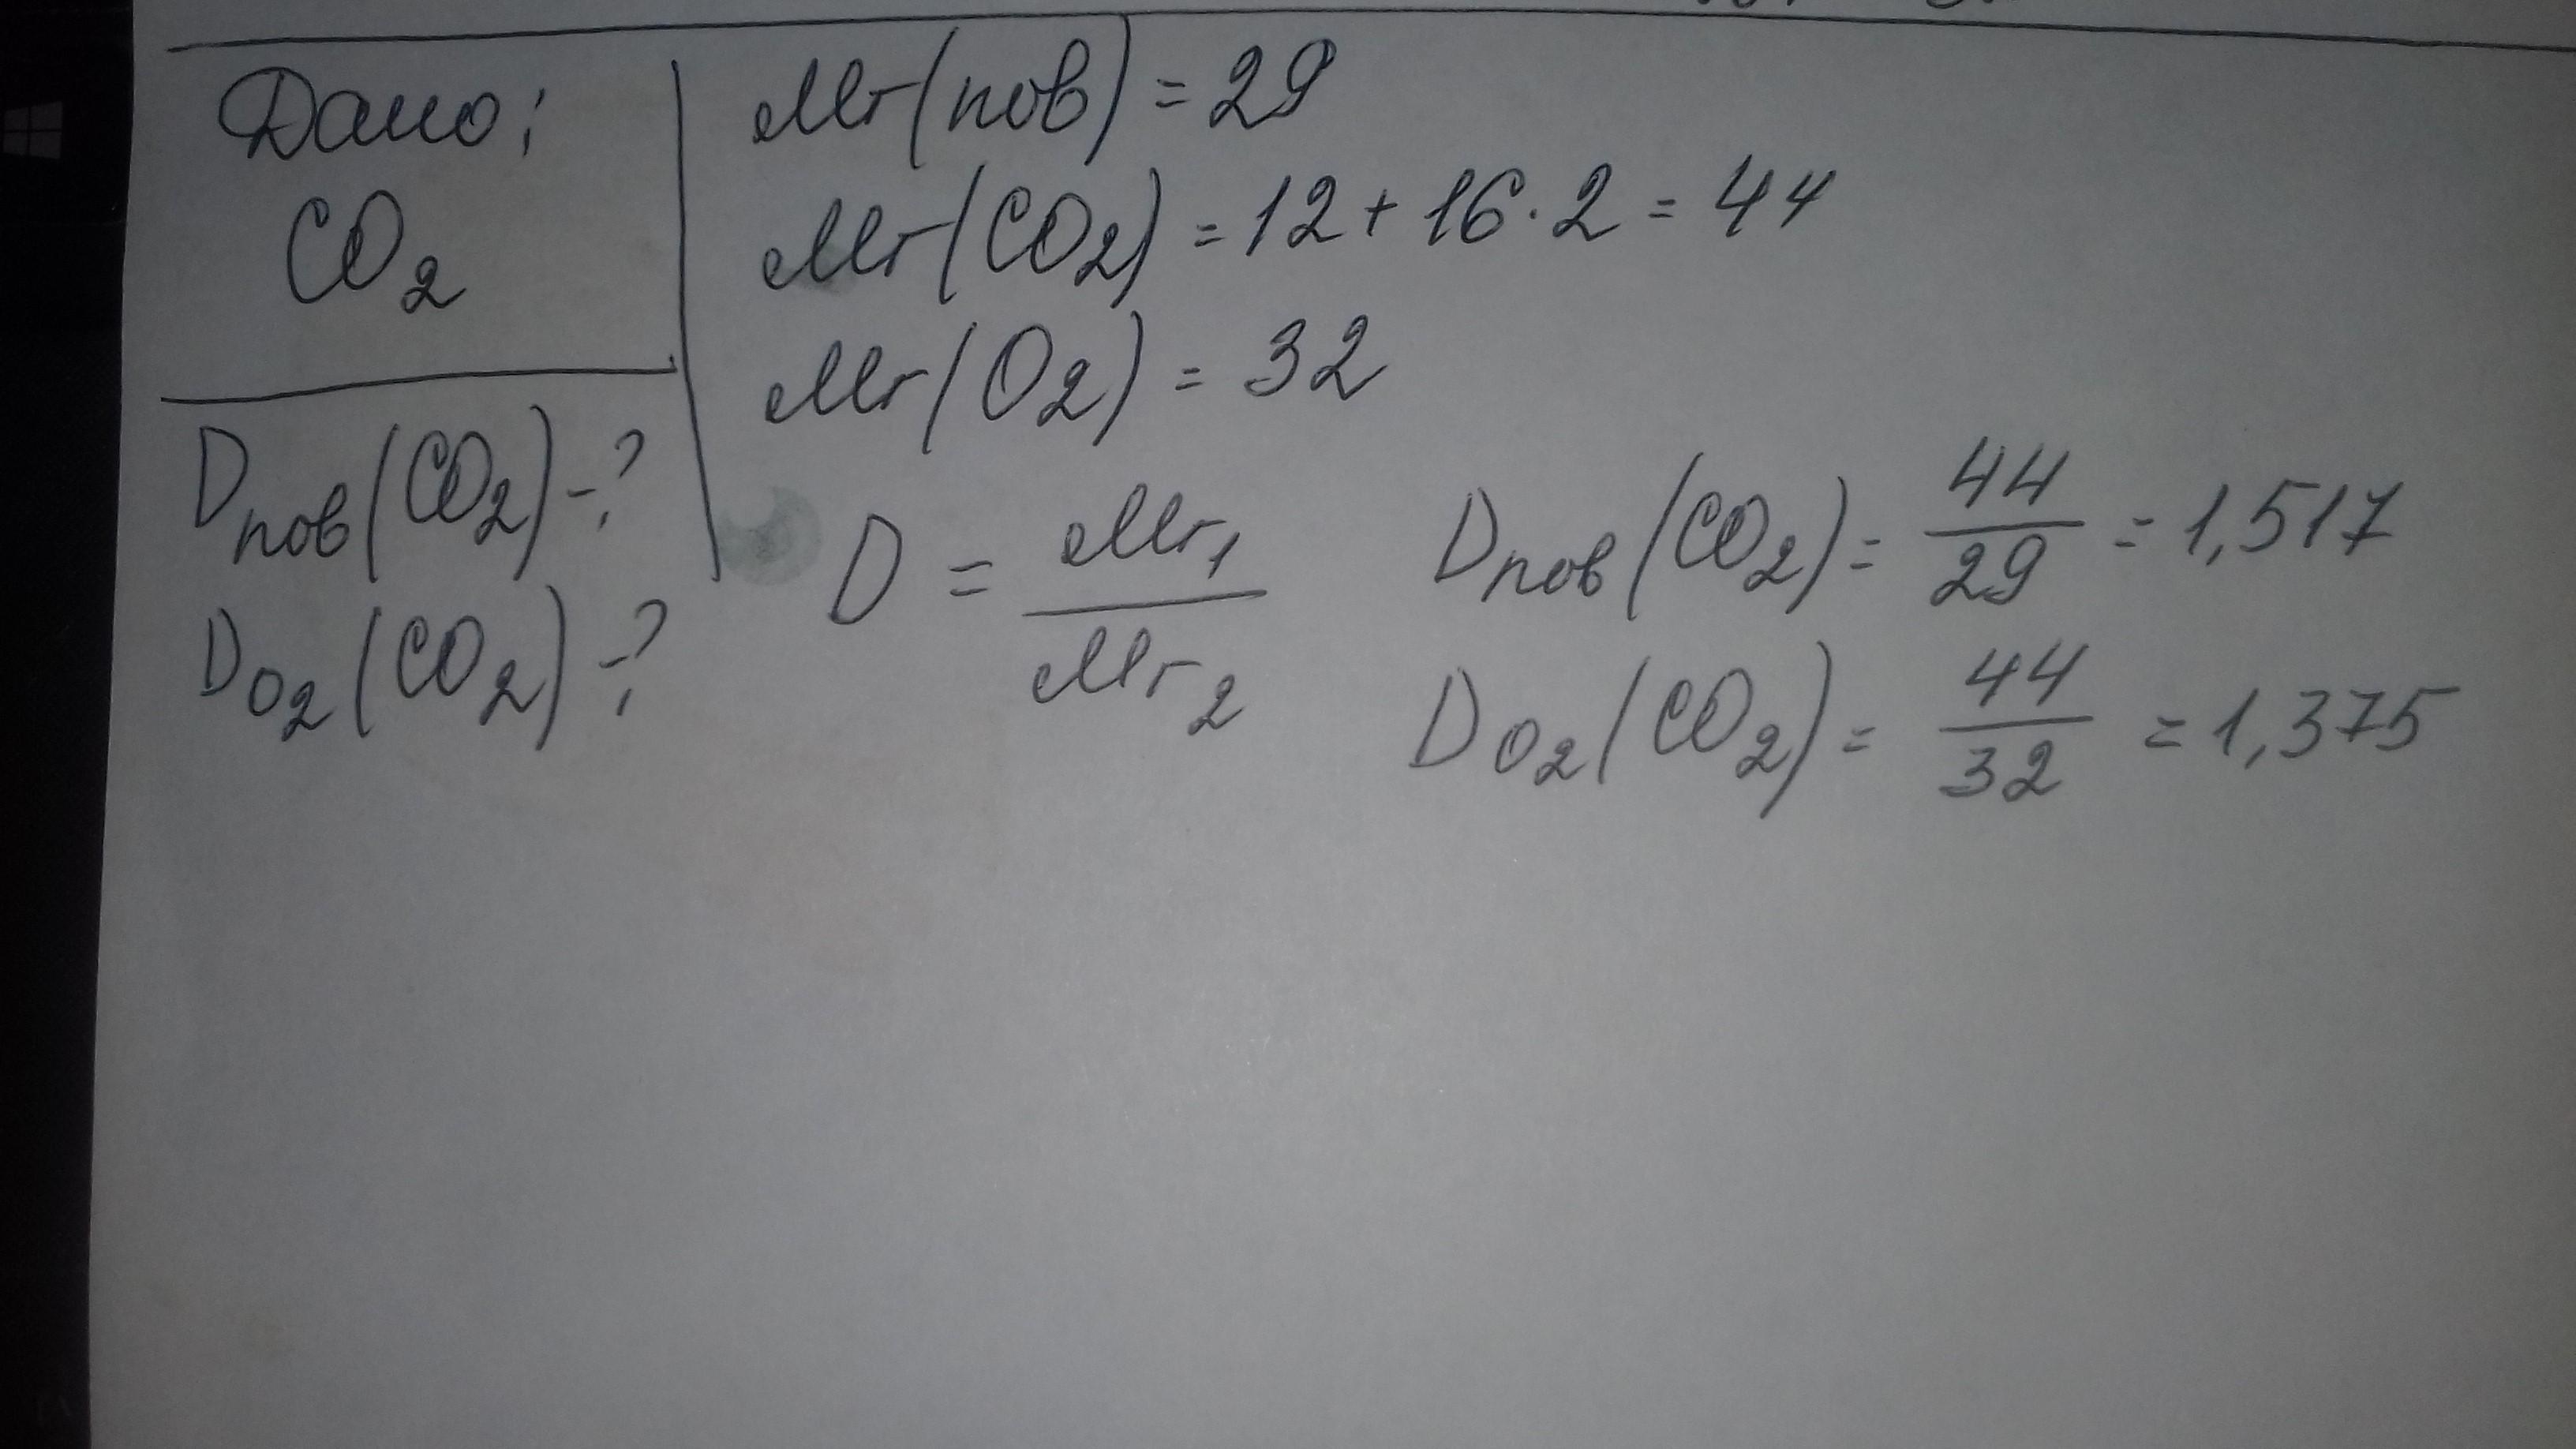 Дано:
CO₂
Dпов(CO₂)-?
D O₂(CO₂)-?
Mr(пов) = 29
Mr(CO₂) = 12 + 16 · 2 = 44
Mr(O₂) = 32
D = Mr₁ / Mr₂
Dпов(CO₂) = 44/29 = 1,517
D O₂(CO₂) = 44/32 = 1,375